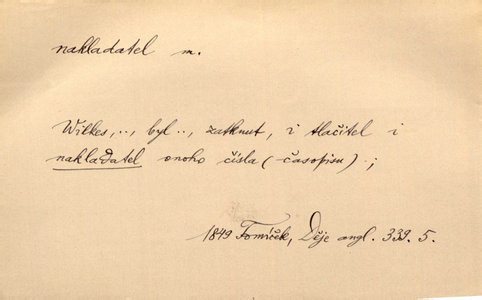 nakladatel m.
Wilkes, .., byl .., zatknut, i tlačitel i
nakladatel onoho čísla (časopisu).;
1849 Tomíček, Děje angl. 339. 5.